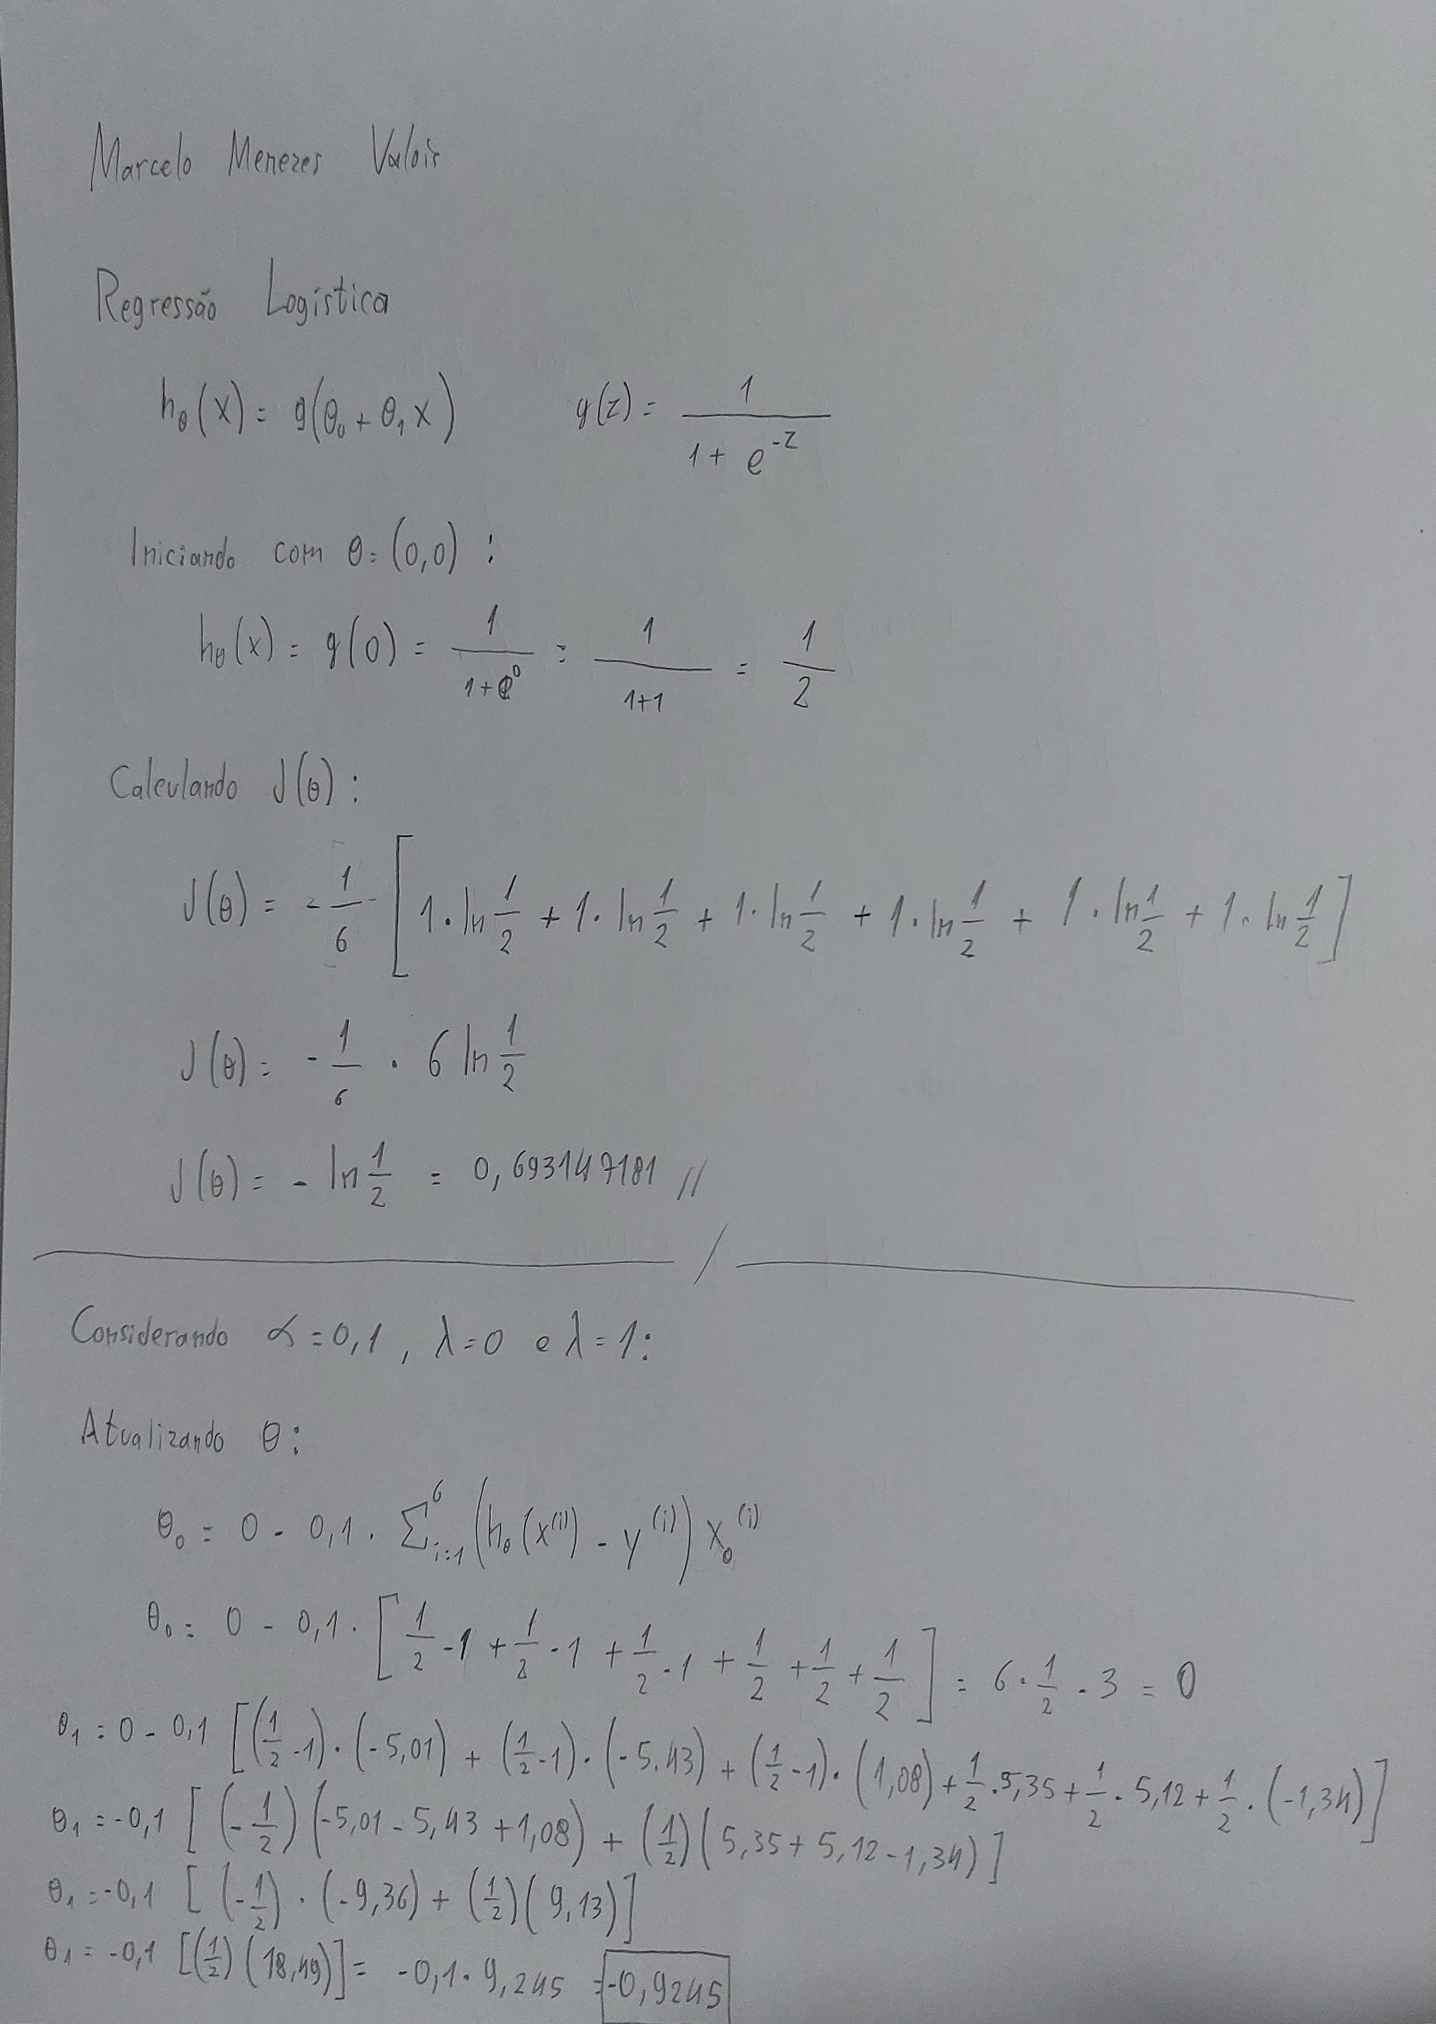 Marcelo Menezes Valois
Regressão Logística
hθ(x) = g(θ₀ + θ₁x)    g(z) = 1/(1 + e^-z)
Iniciando com θ = (0,0) :
hθ(x) = g(0) = 1/(1+e⁰) = 1/(1+1) = 1/2
Calculando J(θ) :
J(θ) = -1/6 [1·ln 1/2 + 1·ln 1/2 + 1·ln 1/2 + 1·ln 1/2 + 1·ln 1/2 + 1·ln 1/2]
J(θ) = -1/6 · 6 ln 1/2
J(θ) = - ln 1/2 = 0,693147181 //
Considerando α = 0,1 , λ=0 e λ=1:
Atualizando θ:
θ₀ = 0 - 0,1 · Σ⁶ᵢ₌₁ (hθ(x⁽ⁱ⁾) - y⁽ⁱ⁾) x₀⁽ⁱ⁾
θ₀ = 0 - 0,1 · [1/2 - 1 + 1/2 - 1 + 1/2 - 1 + 1/2 + 1/2 + 1/2] = 6 · 1/2 - 3 = 0
θ₁ = 0 - 0,1 [(1/2 - 1)·(-5,01) + (1/2 - 1)·(-5.43) + (1/2 - 1)·(1,08) + 1/2 · 5,35 + 1/2 · 5,12 + 1/2 · (-1,34)]
θ₁ = -0,1 [(-1/2)(-5,01 - 5,43 + 1,08) + (1/2)(5,35 + 5,12 - 1,34)]
θ₁ = -0,1 [(-1/2)·(-9,36) + (1/2)(9,13)]
θ₁ = -0,1 [(1/2)(18,49)] = -0,1 · 9,245 = -0,9245